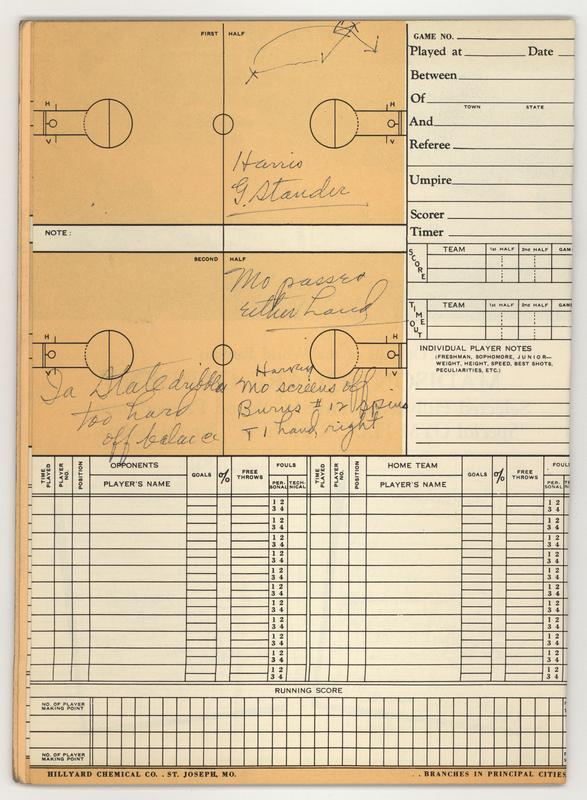 FIRST HALF
GAME NO.
Played at Date
Between
Of
TOWN STATE
And
Referee
Umpire
Scorer
Timer
H H
V V
Harris
G. Stander
NOTE:
SCORE TEAM 1st HALF 2nd HALF GAM
TIME OUT TEAM 1st HALF 2nd HALF GAM
SECOND HALF
Mo passes
Either hand
H H
V V
INDIVIDUAL PLAYER NOTES
(FRESHMAN, SOPHOMORE, JUNIOR—
WEIGHT, HEIGHT, SPEED, BEST SHOTS,
PECULIARITIES, ETC.)
Ia State dribbles
too hard
off balance
Harvey
Mo screens off
Burns #12 spins
T 1 hand right
TIME PLAYED PLAYER NO. POSITION OPPONENTS PLAYER'S NAME GOALS % FREE THROWS FOULS PER- SONAL TECH- NICAL
TIME PLAYED PLAYER NO. POSITION HOME TEAM PLAYER'S NAME GOALS % FREE THROWS FOUL PER- SONAL TE NI
1 2 1 2
3 4 3 4
1 2 1 2
3 4 3 4
1 2 1 2
3 4 3 4
1 2 1 2
3 4 3 4
1 2 1 2
3 4 3 4
1 2 1 2
3 4 3 4
1 2 1 2
3 4 3 4
1 2 1 2
3 4 3 4
1 2 1 2
3 4 3 4
1 2 1 2
3 4 3 4
1 2 1 2
3 4 3 4
RUNNING SCORE
NO. OF PLAYER
MAKING POINT
NO. OF PLAYER
MAKING POINT
HILLYARD CHEMICAL CO. . ST. JOSEPH, MO. . . BRANCHES IN PRINCIPAL CITIES